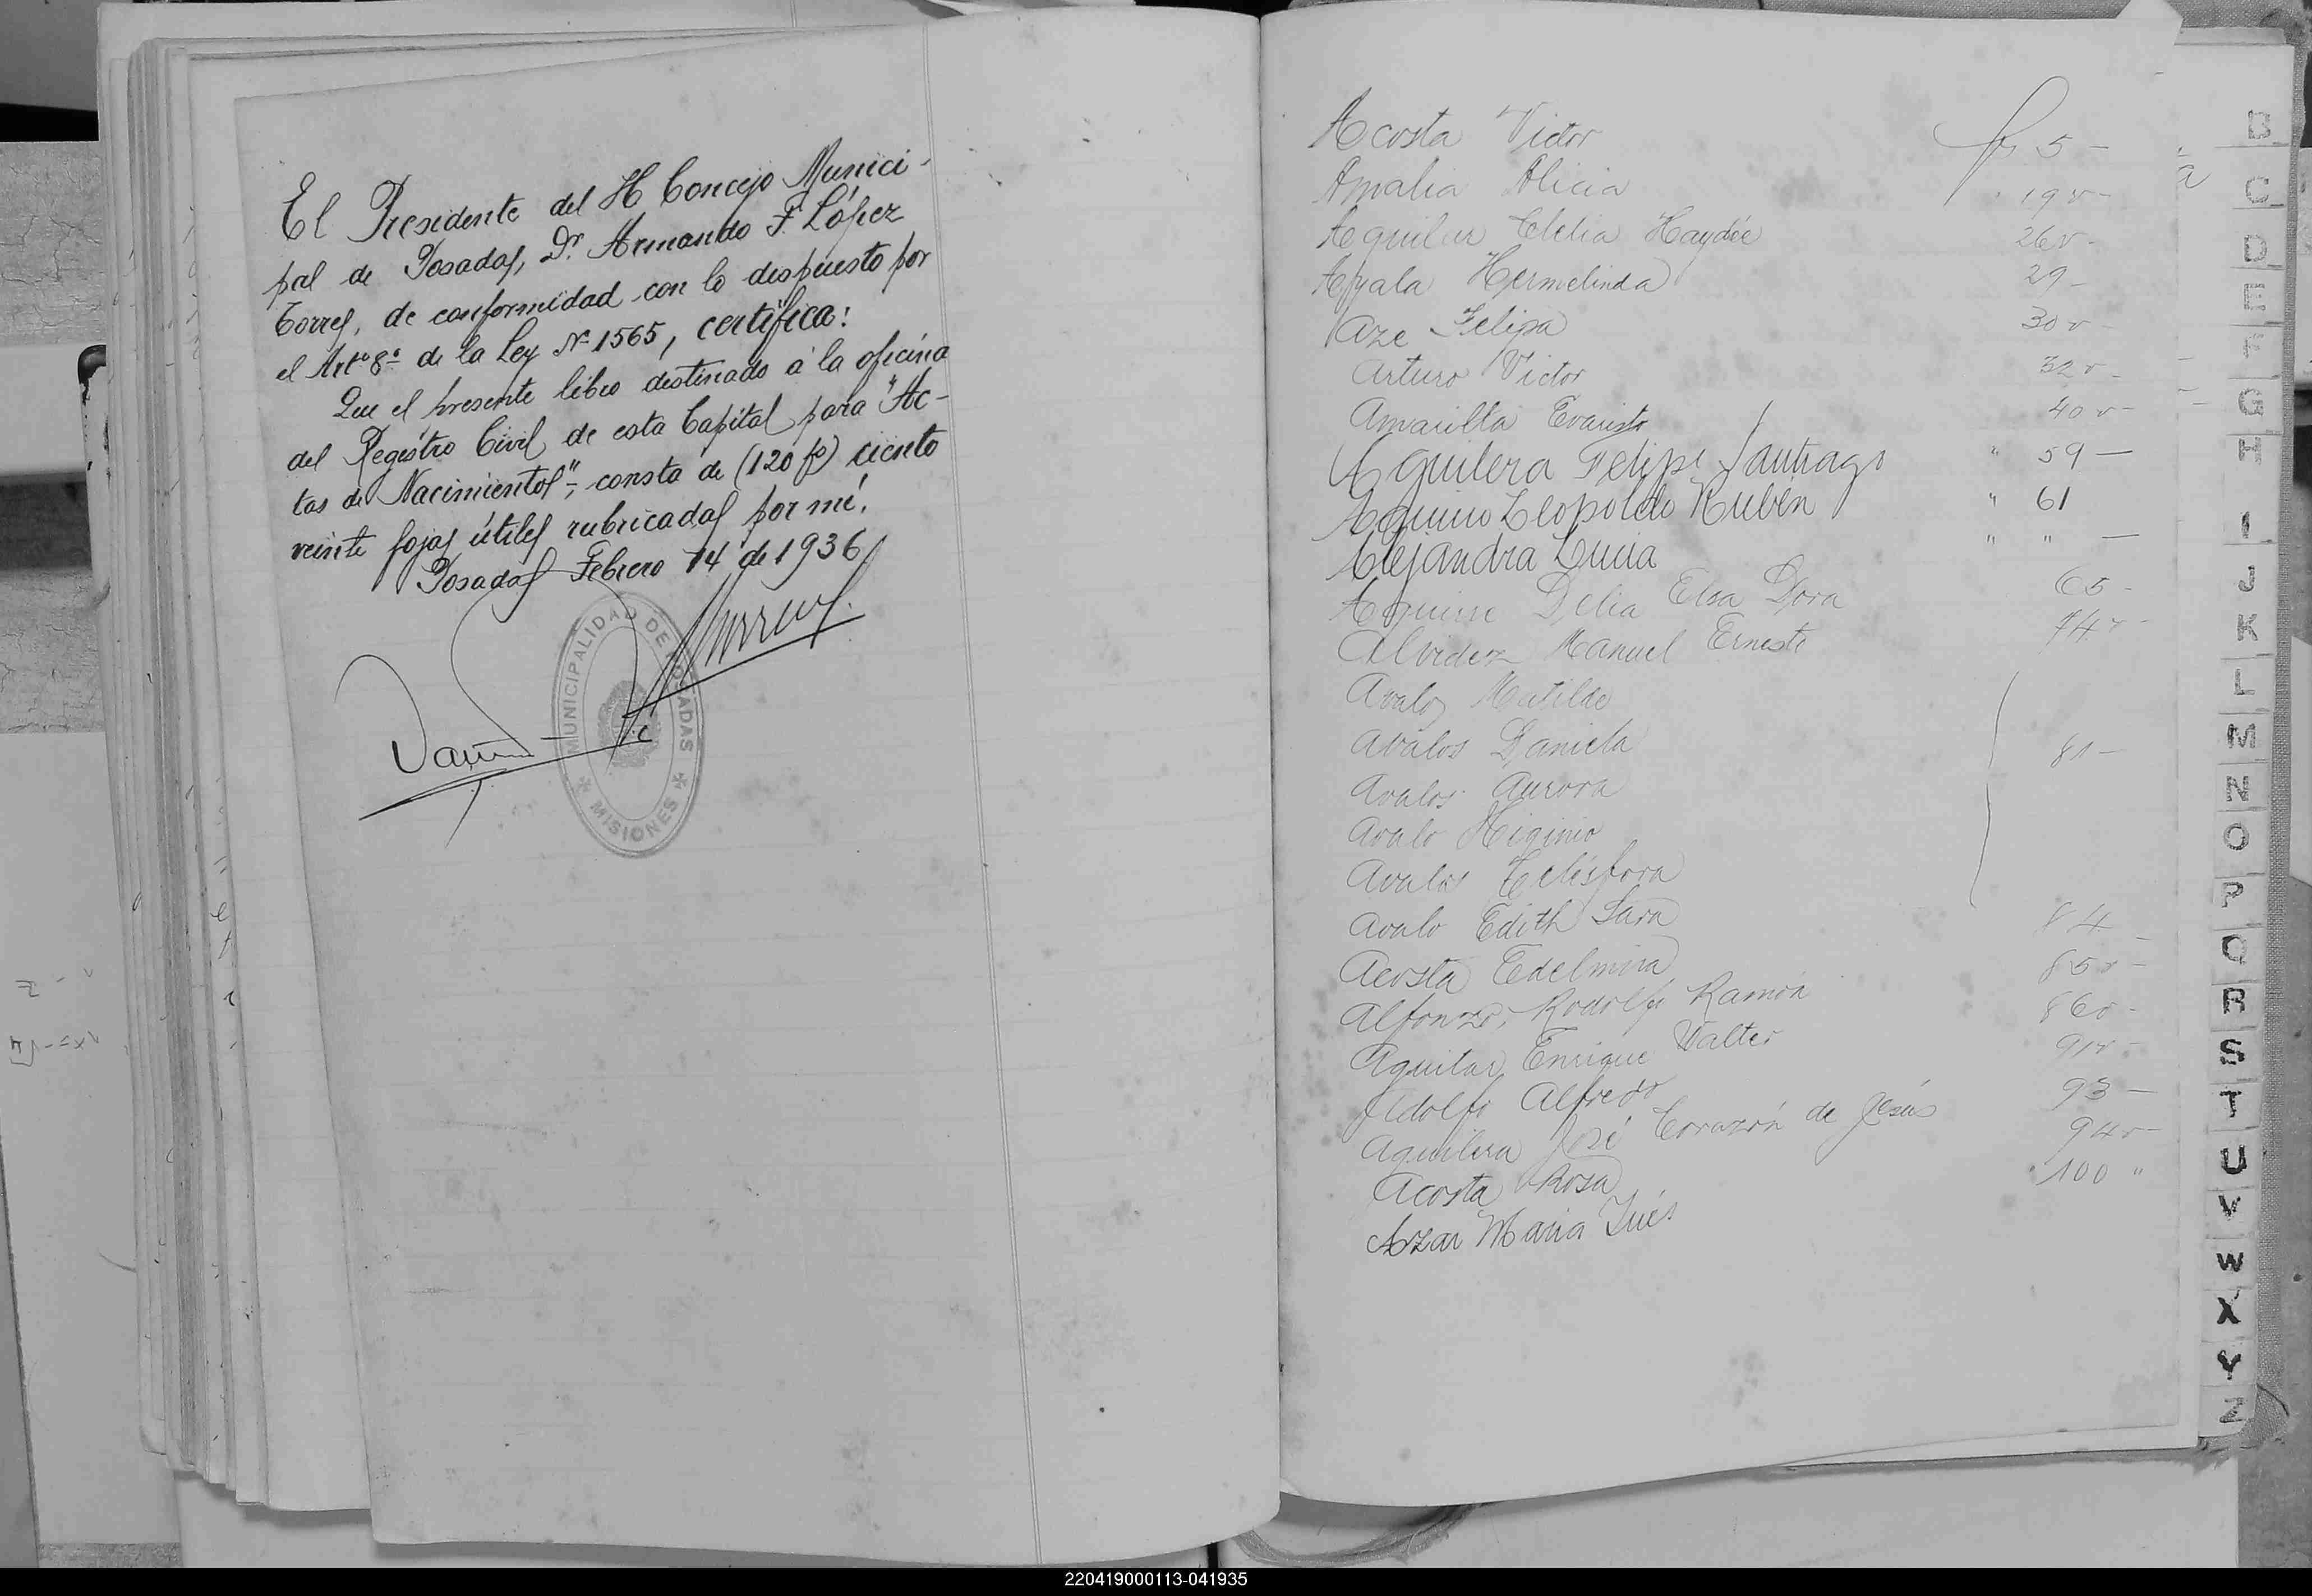 El Presidente del H Concejo Munici-
pal de Posadas, Dr. Armando F. López
Torres, de conformidad con lo dispuesto por
el Artº 8º de la Ley Nº 1565, certifica:
Que el presente libro destinado a la oficina
del Registro Civil de esta Capital para "Ac-
tas de Nacimientos", consta de (120 fs) ciento
veinte fojas útiles rubricadas por mí.
Posadas Febrero 14 de 1936
MUNICIPALIDAD DE POSADAS
MISIONES
Acosta Victor fs 5 -
Amalia Alicia 19v -
Aguilar Clelia Haydée 26v -
Ayala Hermelinda 29 -
Aze Felipa 30v -
Arturo Victor 32v -
Amarilla Evaristo 40v -
Aguilera Felipe Santiago " 59 -
Aquino Leopoldo Rubén " 61
Alejandra Lucia " " -
Aguirre Delia Elsa Dora 65 -
Alvidez Manuel Ernesto 74v -
Avalos Matilde
Avalos Daniela 81 -
Avalos Aurora
Avalo Higinio
Avalos Telésfora
Avalo Edith Sara 84 -
Acosta Edelmira 85v -
Alfonzo, Rodolfo Ramón 86v -
Aguilar Enrique Walter 91v -
Adolfo Alfredo 93 -
Aguilera José Corazón de Jesús 94v -
Acosta Rosa 100 "
Arzar Maria Inés
B
C
D
E
F
G
H
I
J
K
L
M
N
O
P
Q
R
S
T
U
V
W
X
Y
Z
220419000113-041935